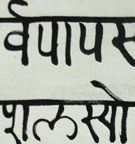 र्वपापस
शलस्यो